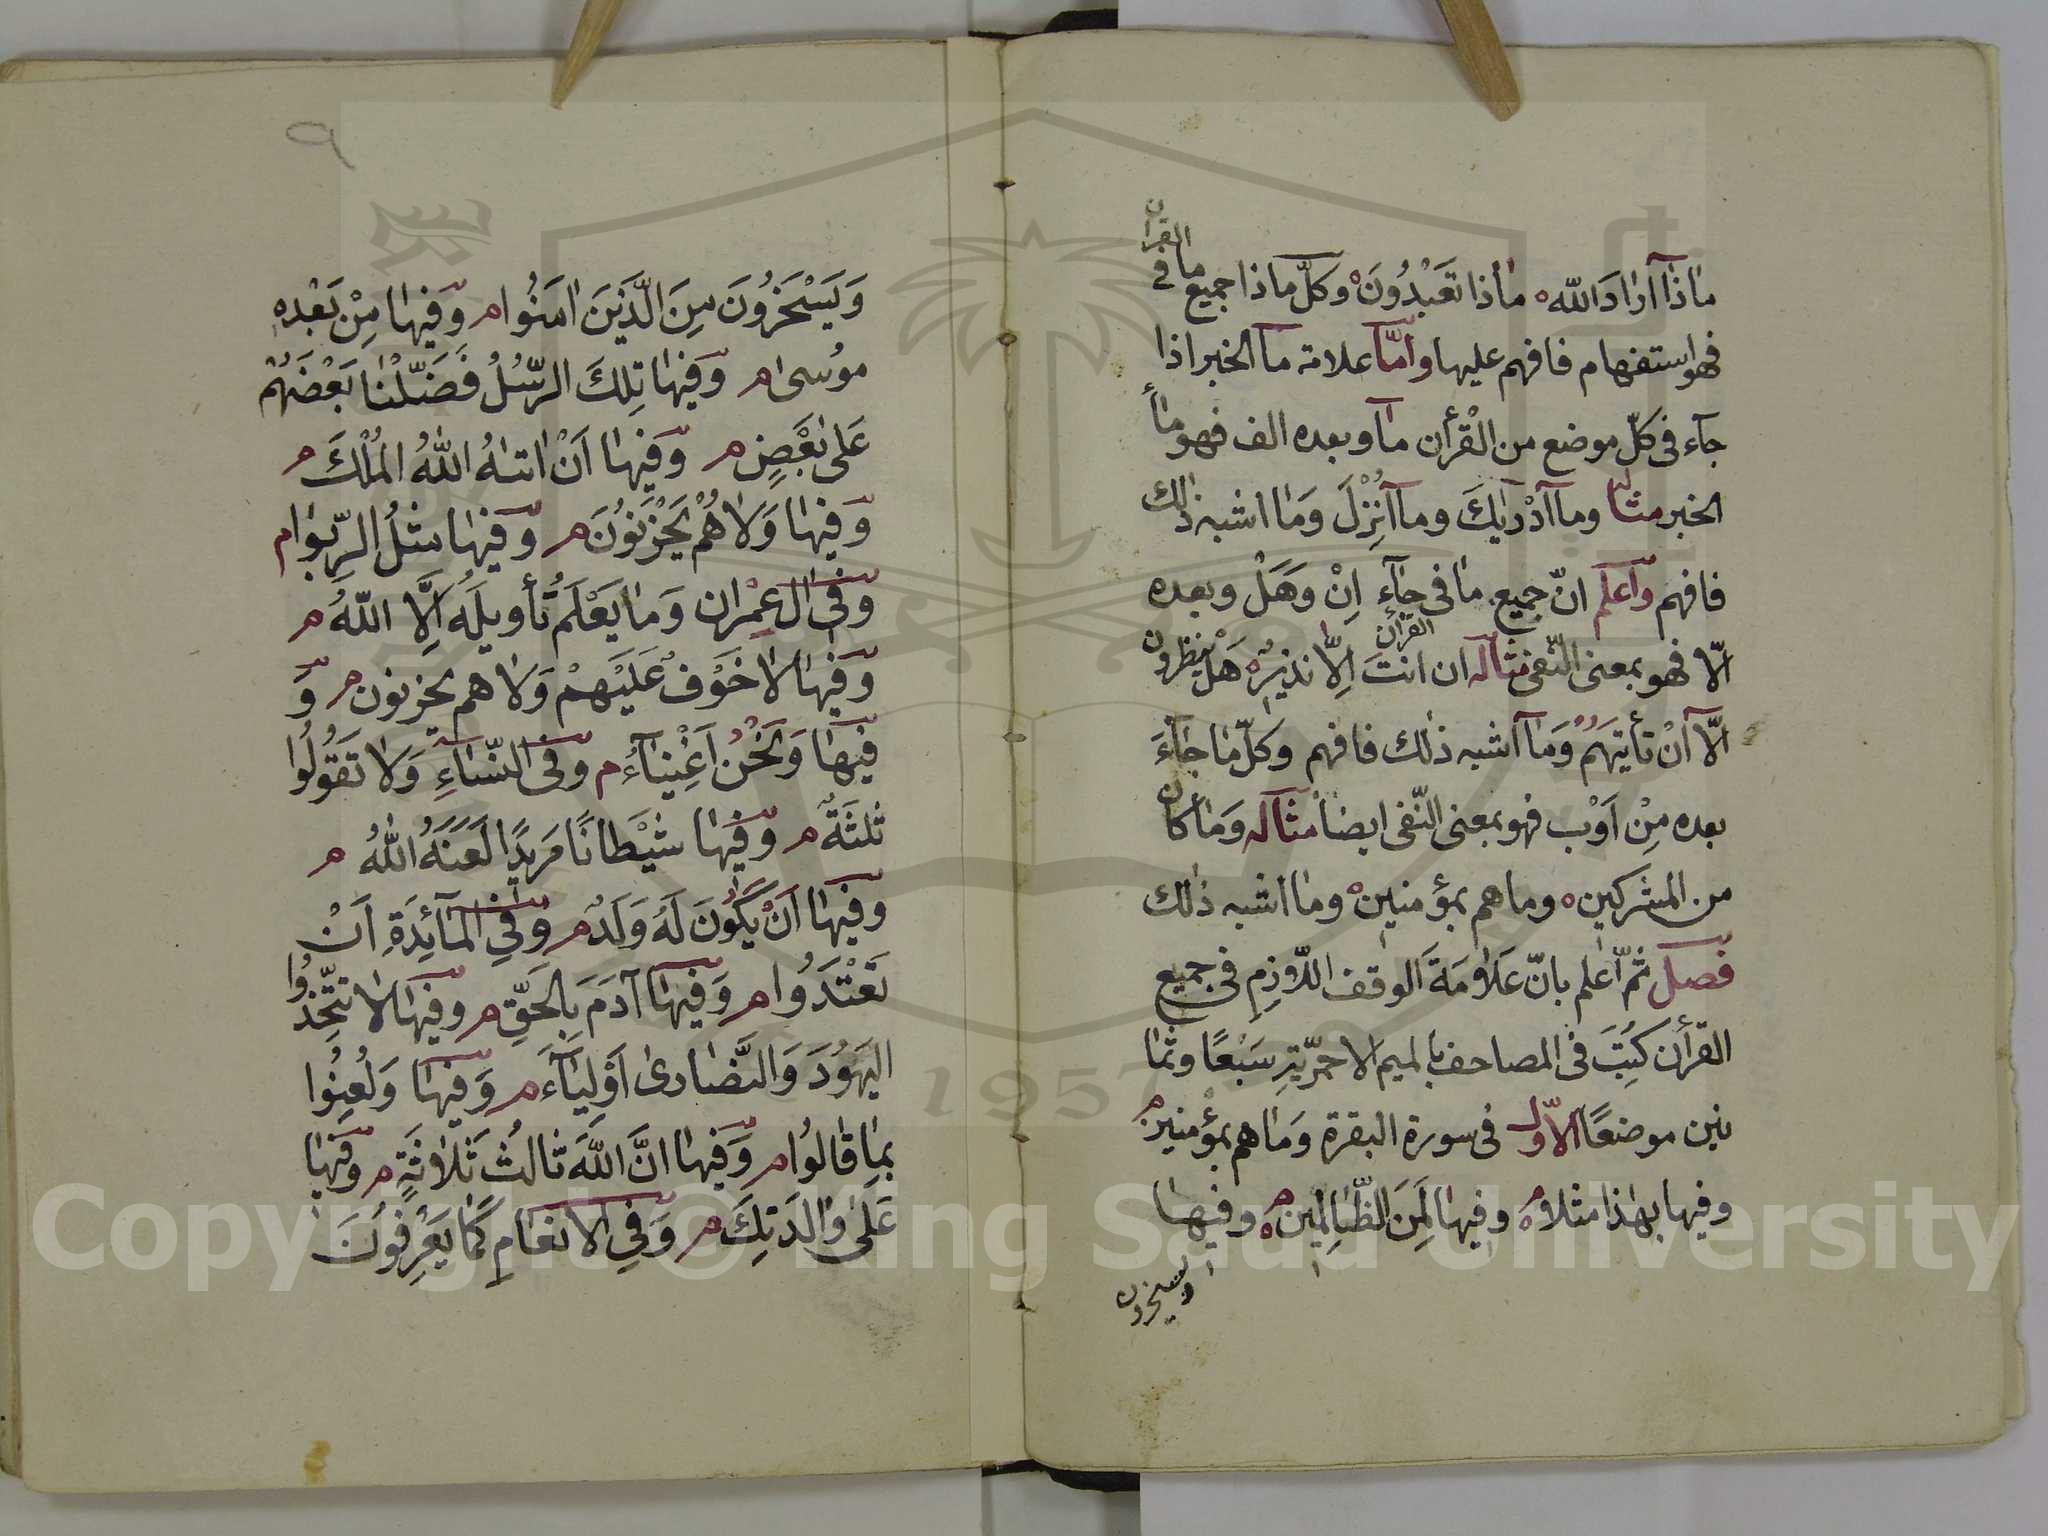 مٰاذَآ اَرٰادَ اللّٰه ه مٰاذا تَعْبُدُونَ ه وكلّ ماذا جميع ما في القرأن
فهو استفهام فافهم عليها وامّا علامة ما الخبر اذا
جآء فى كلّ موضع من القْرأن مآ وبعده الف فهو مٰا
الخبر مثاله ومآ اَدْرٰيكَ ومآ اُنْزِلَ وَمٰا اشبه ذٰلك
فافهم وآعلم انّ جميع ما فى القرأن جآء اِنْ وَهَلْ وبعده
الّا فهو بمعنى النّفى مثاله ان انتَ اِلّا نذير ه هَلْ ينظرون
الّآ اَنْ تأتيَهُمْ وَمٰا اشبه ذٰلك فافهم وكلّ مٰا جٰآءَ
بعده مِنْ اَوْب فهو بمعنى النّفى ايضاً مثاله وَمٰا كان
من المشركين ه وما هم بمؤمنين ه ومٰا اشبه ذٰلك
فصل ثمّ اعلم بانّ عَلٰامَةَ الوقف اللّازِمِ فى جميع
القرأن كُتِبَت فى المصاحف بالميم الاحمريّة سَبْعًا وثمٰا
نين موضعًا الاوّل فى سورة البقرة وَمٰا هم بمؤمنين م
وفيها بهٰذا مثلا م وفيهٰا لَمِنَ الظّٰالِمين م وفيهٰا
ويسخرون
٩
وَيَسْخَرُونَ مِنَ الَّذينَ اٰمَنُوا م وَفيهٰا مِنْ بَعْدِه
مُوسىٰ م وَفيهٰا تِلكَ الرّسُلُ فَضَّلْنٰا بَعْضَهُمْ
عَلىٰ بَعْضٍ م وَفيهٰا اَنْ اٰتٰىهُ اللّٰهُ المُلْكَ م
وَفيهٰا وَلاٰ هُمْ يَحْزَنُونَ م وَفيهٰا مِثلُ الرّبوٰا م
وَفى اٰل عِمْرٰن وَمٰا يَعْلَمُ تَأويلَهُ اِلَّا اللّٰهُ م
وَفيهٰا لاٰ خَوْفٌ عَلَيْهِمْ وَلاٰ هم يحزنون م وَ
فيهٰا وَنَحْنُ اَغْنِيٰآءُ م وَفى النّسٰآءِ وَلاٰ تَقُولُوا
ثلٰثَةٌ م وَفيهٰا شَيْطٰانًا مَريدًا لَعَنَهُ اللّٰهُ م
وَفيهٰا اَنْ يَكُونَ لَهُ وَلَدٌ م وَفِي المٰآئِدَةِ اَنْ
تَعْتَدُوا م وَفيهٰا آدَمَ بِالحَقِّ م وَفيهٰا لاٰ تتّخِذُوا
اليَهُودَ وَالنَّصٰارىٰ اَوْلِيٰآءَ م وَفيهٰا وَلُعِنُوا
بِمٰا قٰالُوا م وَفيهٰا انَّ اللّٰهَ ثٰالثُ ثَلٰاثَةٍ م وَفيهٰا
عَلىٰ وٰالدَتِكَ م وَفِي الاَنعٰامِ كَمٰا يَعْرِفُونَ
Copyright © King Saud University
1957